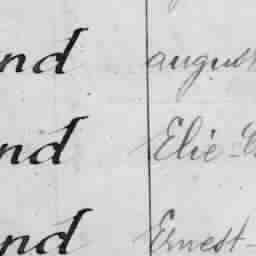 nd august
nd Elie-
nd Ernest-